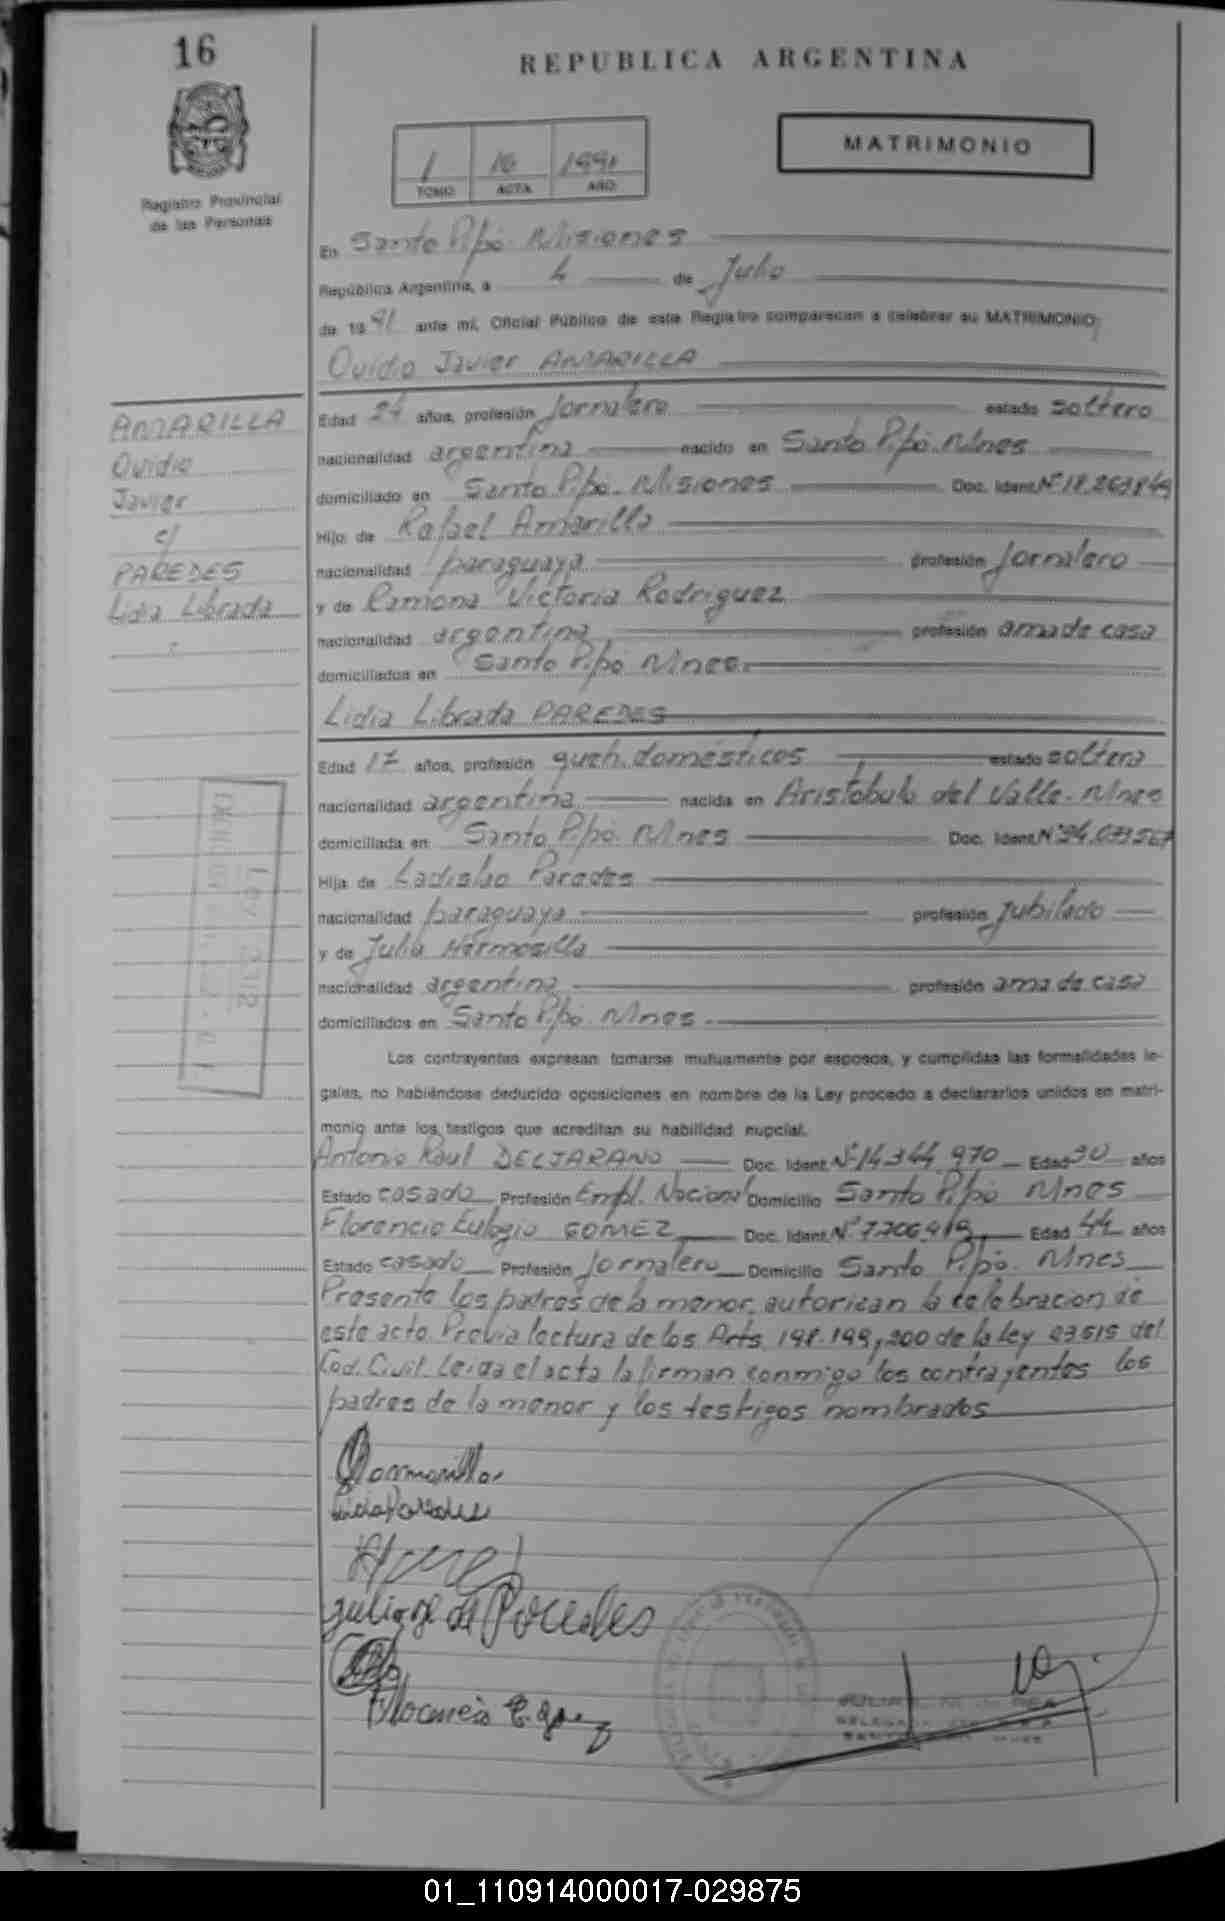 16
REPUBLICA ARGENTINA
Registro Provincial
de las Personas
1 16 1991
TOMO ACTA AÑO
MATRIMONIO
En Santo Pipó. Misiones
República Argentina, a 4 de Julio
de 1991 ante mí, Oficial Público de este Registro comparecen a celebrar su MATRIMONIO;
Ovidio Javier AMARILLA
AMARILLA
Ovidio
Javier
c/
PAREDES
Lidia Librada
Edad 24 años, profesión Jornalero estado soltero
nacionalidad argentina nacido en Santo Pipó. Mnes
domiciliado en Santo Pipó. Misiones Doc. Ident. Nº 18.263849
Hijo de Rafael Amarilla
nacionalidad paraguaya profesión Jornalero
y de Ramona Victoria Rodriguez
nacionalidad argentina profesión ama de casa
domiciliados en Santo Pipó Mnes.
Lidia Librada PAREDES
Edad 17 años, profesión queh. domésticos estado soltera
nacionalidad argentina nacida en Aristóbulo del Valle. Mnes
domiciliada en Santo Pipó. Mnes Doc. Ident. Nº 34.073567
Hija de Ladislao Paredes
nacionalidad paraguaya profesión Jubilado
y de Julia Hermosilla
nacionalidad argentina profesión ama de casa
domiciliados en Santo Pipó. Mnes.
Los contrayentes expresan tomarse mutuamente por esposos, y cumplidas las formalidades le-
gales, no habiéndose deducido oposiciones en nombre de la Ley procedo a declararlos unidos en matri-
monio ante los testigos que acreditan su habilidad nupcial.
Antonio Raul DELJARANO Doc. Ident. Nº 14344.970 Edad 30 años
Estado casado Profesión Empl. Nacional Domicilio Santo Pipó Mnes
Florencio Eulogio GOMEZ Doc. Ident. Nº 7.706.419 Edad 44 años
Estado casado Profesión Jornalero Domicilio Santo Pipó. Mnes
Presente los padres de la menor, autorizan la celebracion de
este acto. Previa lectura de los Arts. 198.199, 200 de la ley 23515 del
Cod. Civil. Leida el acta la firman conmigo los contrayentes los
padres de la menor y los testigos nombrados
Ley 3312
Lidia Paredes
Julia H de Paredes
Florencio E. Gomez
01_110914000017-029875